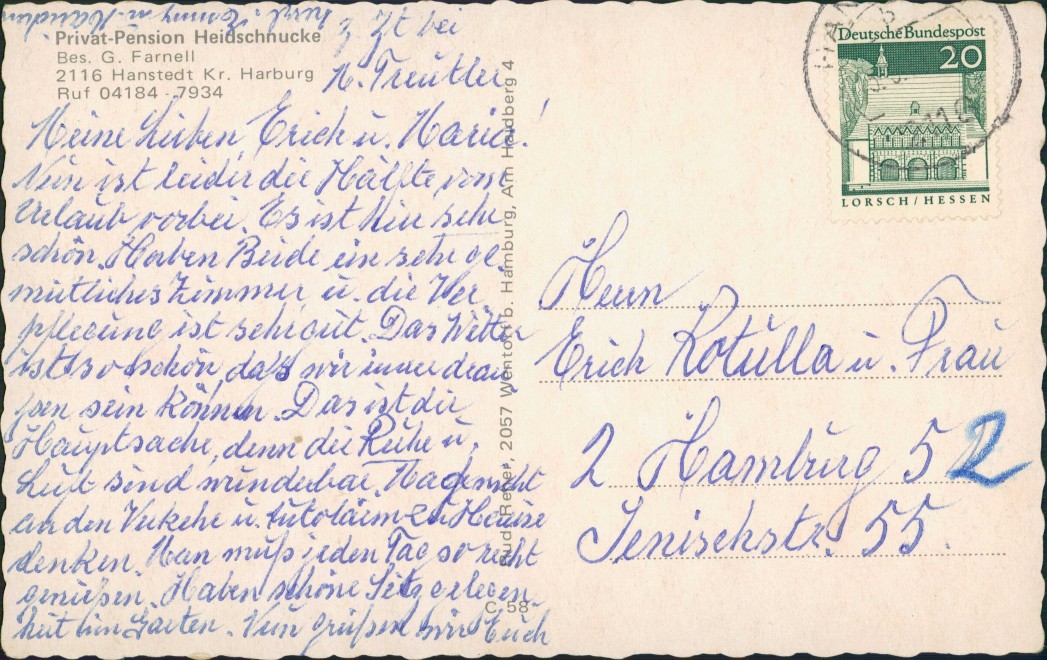 herzl.
Privat-Pension Heidschnucke
Bes. G. Farnell
2116 Hanstedt Kr. Harburg
Ruf 04184 - 7934
z. Zt bei
A. Treutler
Meine Lieben Erich u. Maria!
Nun ist leider die Hälfte vom
Urlaub vorbei. Es ist hier sehr
schön. Haben Beide ein sehr ge
mütliches Zimmer u. die Ver
pflegung ist sehr gut. Das Wetter
ist so schön, daß wir immer drau
ßen sein können. Das ist die
Hauptsache, denn die Ruhe u.
Luft sind wunderbar. Mag nicht
an den Verkehr u. Autolärm zu Hause
denken. Man muß jeden Tag so recht
genießen. Haben schöne Sitzgelegen
heit im Garten. Nun grüßen wir Euch
Rudi Reher, 2057 Wentorf b. Hamburg, Am Haidberg 4
C 58
Deutsche Bundespost
20
LORSCH/HESSEN
Herrn
Erich Kotulla u. Frau
2 Hamburg 52
Jenischstr. 55.